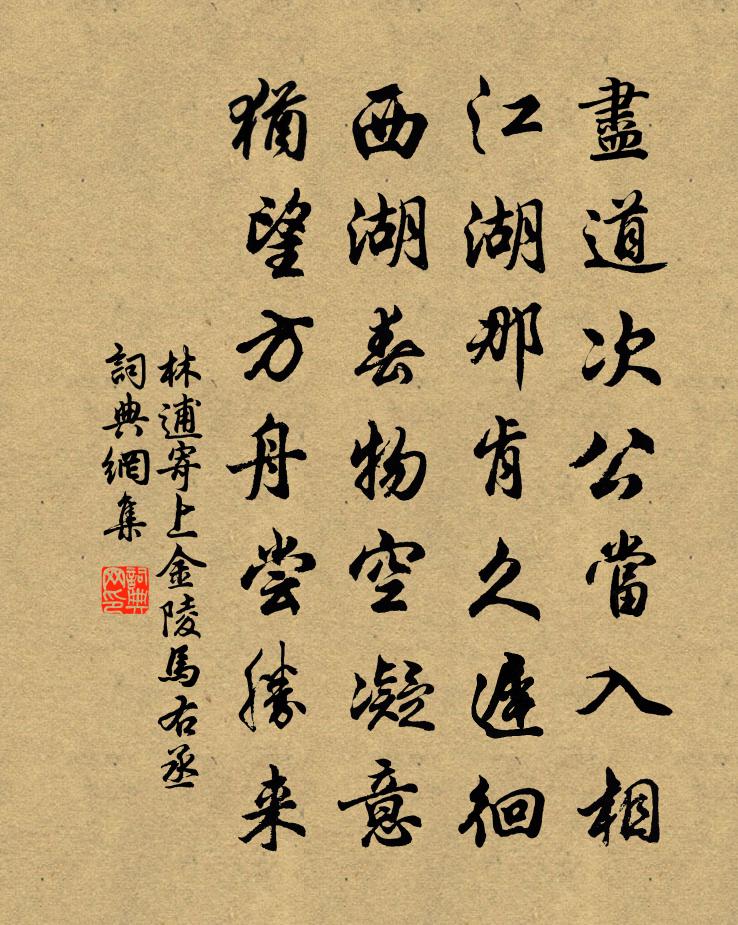 盡道次公當入相
江湖那肯久遲徊
西湖春物空凝意
猶望方舟尝勝来
林逋寄上金陵馬右丞
詞典網集
詞典网印